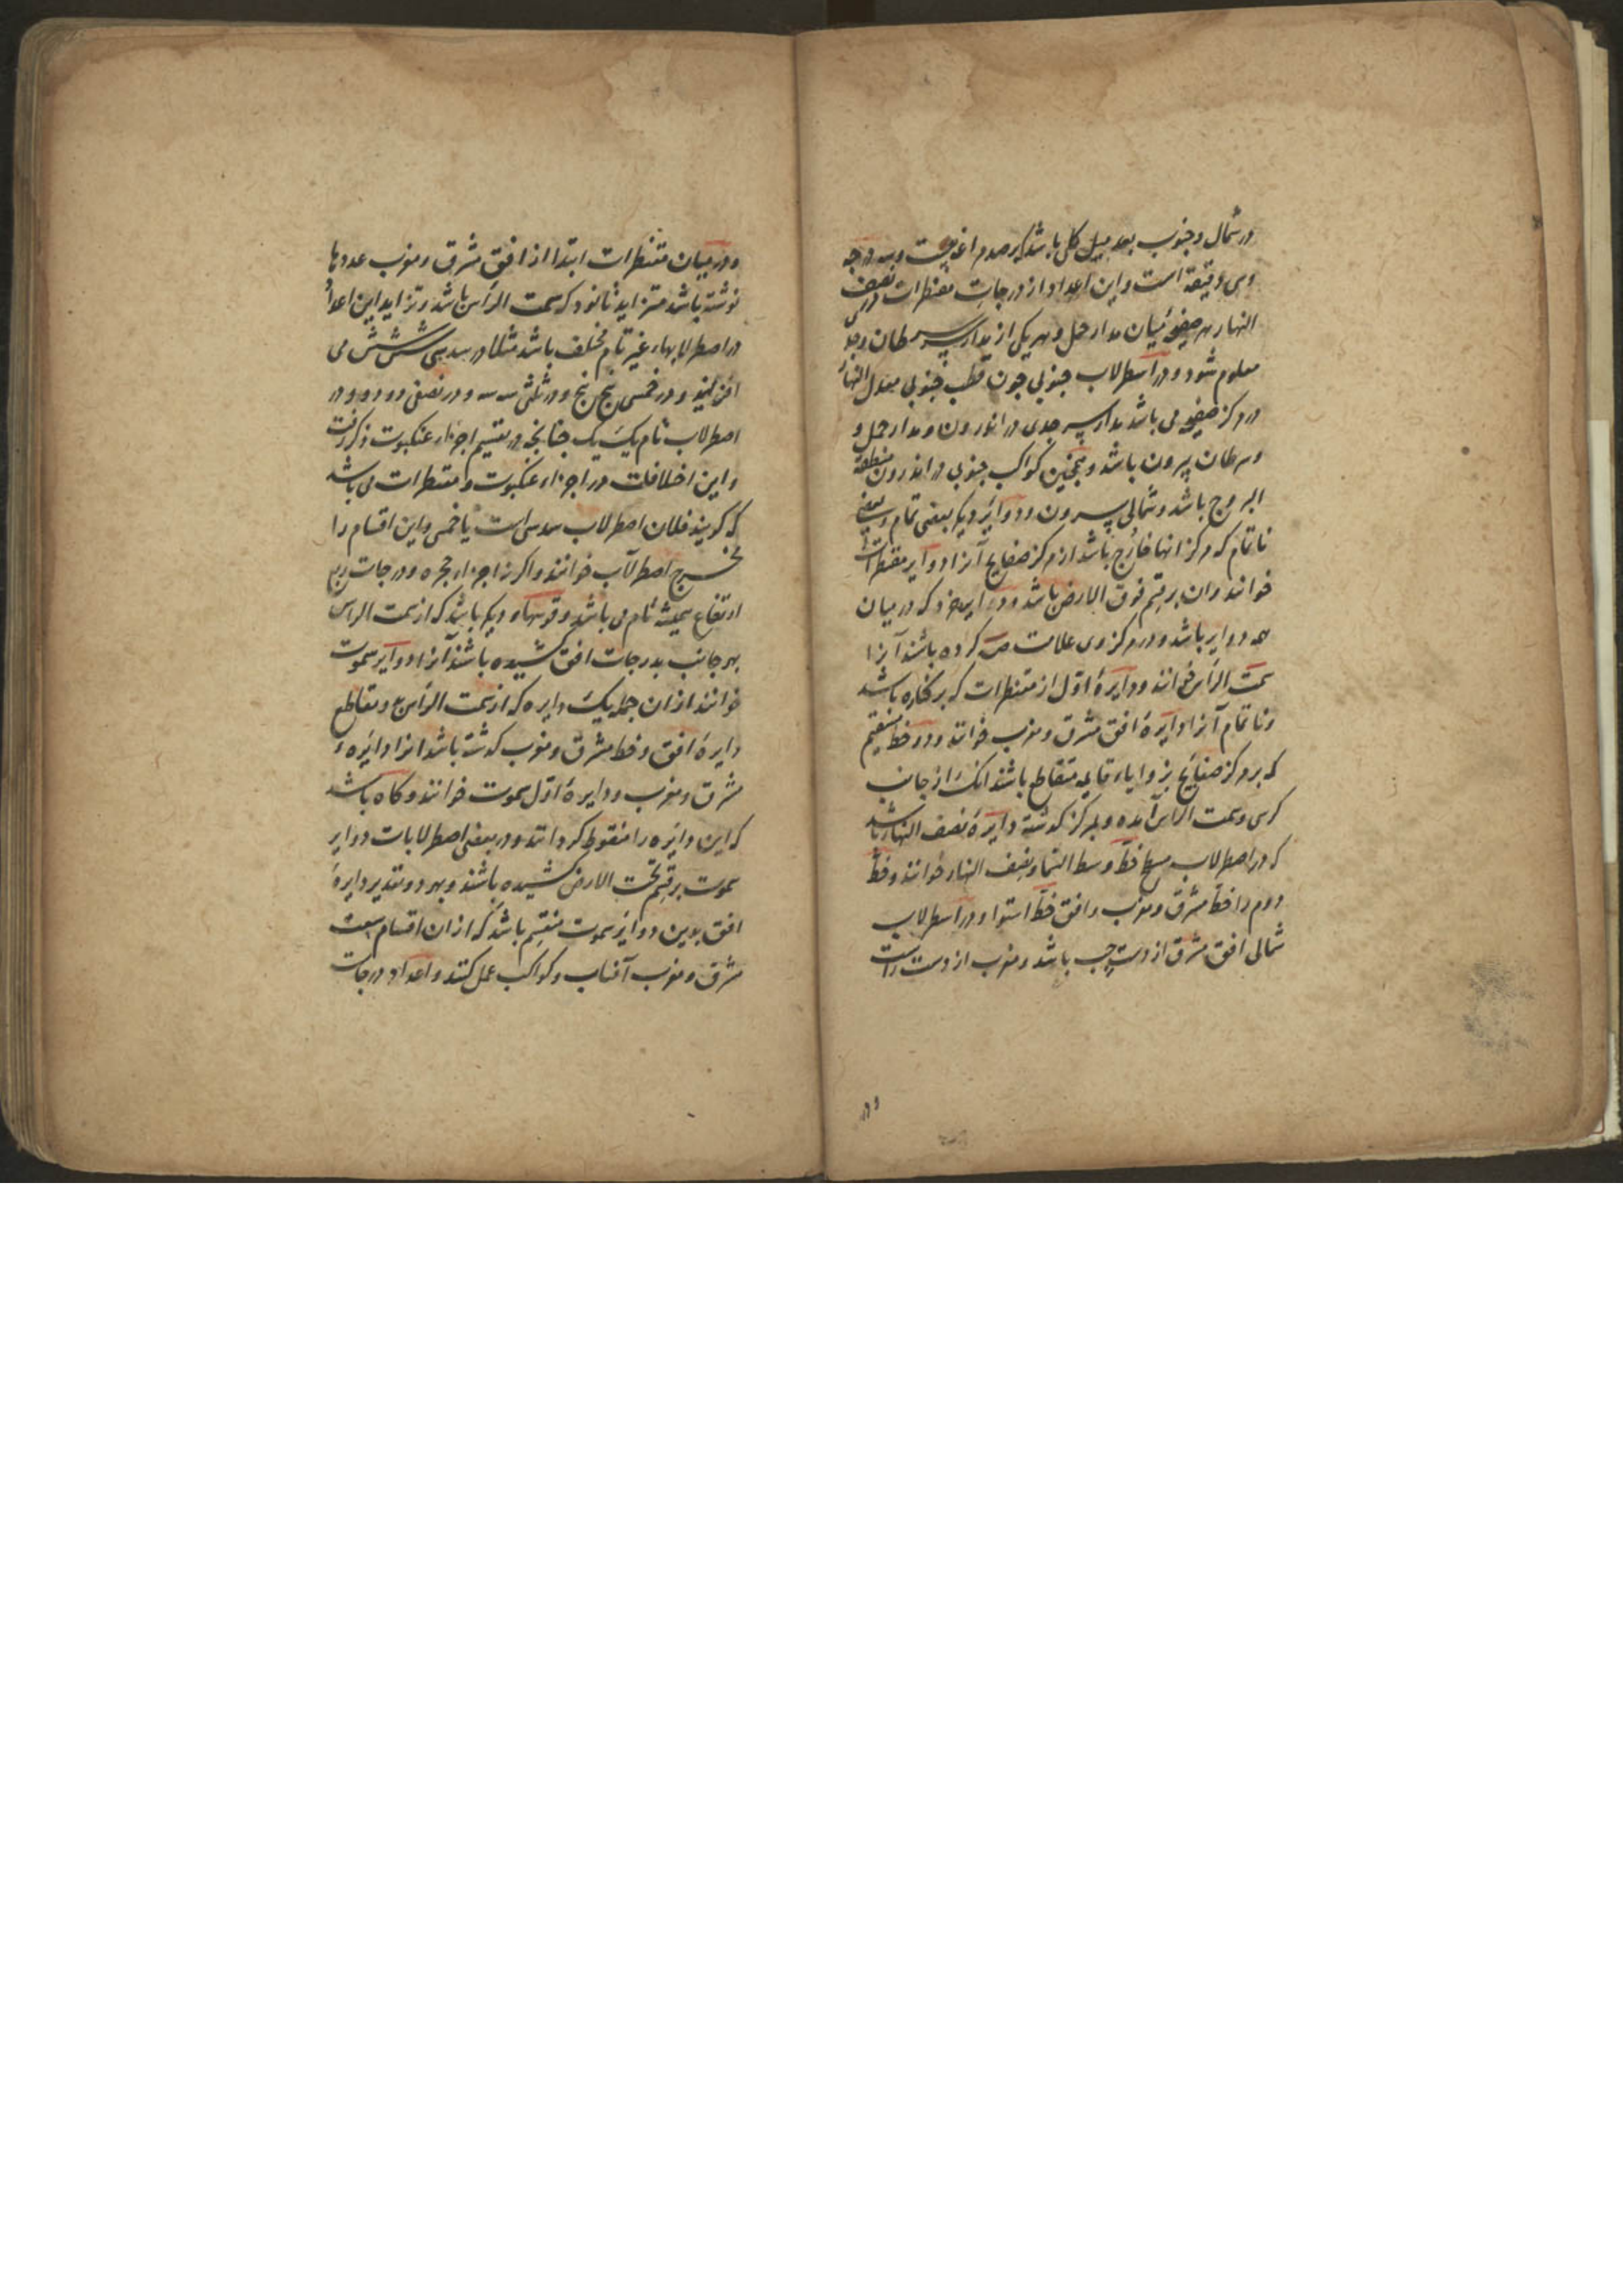 در شمال و جنوب بعد میل کلی باشد برصدم اعنی بیست و سه درجه
وسی دقیقه است واین اعداد از درجات مقنطرات در نصف
النهار هر صفحه میان مدار حمل و هر یکی از مدار سر سرطان وجدی
معلوم شود و در اسطرلاب جنوبی چون قطب جنوبی معدل النهار
در مرکز صفیحه می باشد مدار سر جدی در اندرون ومدار حمل و
وسرطان بیرون باشد وهمچنین کواکب جنوبی در اندرون منطقة
البروج باشد وشمالی بیرون ودوایر دیکر بعضی تمام وبعضی
ناتمام که مرکز انها خارج باشد از مرکز صفایح آنرا دوایر مقنطرات
خوانند وان بر قسم فوق الارض باشد ودایره خرد که در میان
همه دوایر باشد ودر مرکز وی علامت ص کرده باشند آنرا
سمت الرأس خوانند ودایرهٔ اول از مقنطرات که بر کناره باشد
وناتمام آنرا دایرهٔ افق مشرق ومغرب خوانند ودو خط مستقیم
که بر مرکز صفایح بزوایاء قایمه متقاطع باشند انک از جانب
کرسی وسمت الرأس آمده وبمرکز کذشته دایرهٔ نصف النهار باشد
که در اصطرلاب مسطح خط وسط السما ونصف النهار خوانند وخط
دوم را خط مشرق ومغرب وافق خط استوا ودر اسطرلاب
شمالی افق مشرق از دست چپ باشد ومغرب از دست راست
ودر
ودر میان مقنطرات ابتدا از افق مشرق ومغرب عددها
نوشته باشد متزاید تا نود که سمت الرأس باشد وتزاید این اعداد
در اصطرلابهاء غیر تام مختلف باشد مثلا در سدسی شش شش می
افزاید ودر خمسی پنج پنج ودر ثلثی سه سه ودر نصفی دو دو ودر
اصطرلاب تام یک یک چنانچه در تقسیم اجزاء عنکبوت ذکر رفت
واین اختلافات در اجزاء عنکبوت ومقنطرات می باشد
که کویند فلان اصطرلاب سدسی است یا خمسی واین اقسام را
مخرج اصطرلاب خوانند واکر نه اجزاء حجره ودرجات ربع
ارتفاع همیشه تام می باشد وقوسهاء دیکر باشد که از سمت الراس
بهر جانب بدرجات افق کشیده باشند آنرا دوایر سموت
خوانند از ان جمله یک دایره که از سمت الرأس وتقاطع
دایرهٔ افق وخط مشرق ومغرب کذشته باشد انرا دایرهٔ
مشرق ومغرب ودایرهٔ اول سموت خوانند وکاه باشد
که این دایره را منقوط کردانند ودر بعضی اصطرلابات دوایر
سموت بر قسم تحت الارض کشیده باشند وبهر دو تقدیر دایرهٔ
افق بدین دوایر سموت منقسم باشد که از ان اقسام سعت
مشرق ومغرب آفتاب وکواکب عمل کنند واعداد درجات